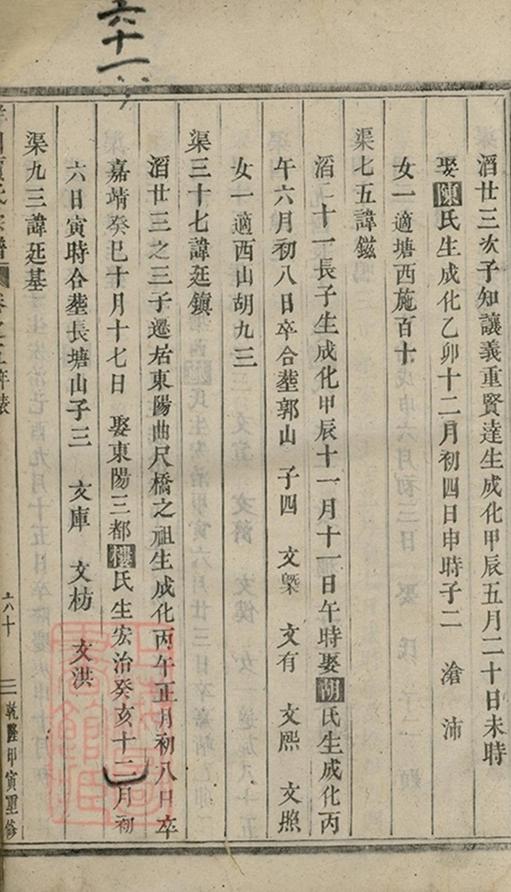 六十一
滔廿三次子知讓義重賢達生成化甲辰五月二十日未時
娶陳氏生成化乙卯十二月初四日申時子二 滄 沛
女一適塘西施百十
渠七五諱鎡
滔二十一長子生成化甲辰十一月十一日午時娶胡氏生成化丙
午六月初八日卒合塟郭山 子四 文槩 文有 文熈 文照
女一適西山胡九三
渠三十七諱廷鎮
滔廿三之三子遷居東陽曲尺橋之祖生成化丙午正月初八日卒
嘉靖癸巳十月十七日 娶東陽三都樓氏生宏治癸亥十二月初
六日寅時合塟長塘山子三 文庫 文枋 文洪
渠九三諱廷基
卷之 年表 六十 乾隆甲寅重修